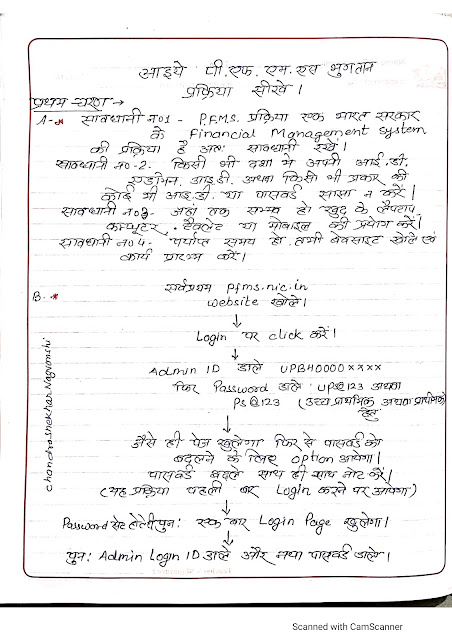 आइये पी.एफ.एम.एस भुगतान
प्रक्रिया सीखे।
प्रथम चरण →
A-* सावधानी नं01 - P.F.M.S. प्रक्रिया एक भारत सरकार
के Financial Management System
की प्रक्रिया है अतः सावधानी रखें।
सावधानी नं0-2. किसी भी दशा में अपनी आई.डी.
एडमिन आई.डी. अथवा किसी भी प्रकार की
कोई भी आई.डी. या पासवर्ड साझा न करें।
सावधानी नं03- जहां तक सम्भव हो खुद के लैपटाप,
कम्प्यूटर, टैबलेट या मोबाइल की प्रयोग करें।
सावधानी नं04- पर्याप्त समय हो तभी वेबसाइट खोले एवं
कार्य प्रारम्भ करें।
B. * सर्वप्रथम pfms.nic.in
website खोले।
↓
Login पर click करें।
↓
Admin ID डाले UPBH0000××××
फिर Password डाले UPS@123 अथवा
PS@123 (उच्च प्राथमिक अथवा प्राथमिक
हेतु
↓
जैसे ही पेज खुलेगा फिर से पासवर्ड को
बदलने के लिए option आयेगा।
पासवर्ड बदले साथ ही साथ नोट करें।
(यह प्रक्रिया पहली बार Login करने पर आयेगा)
↓
Password सेट होते ही पुनः एक बार Login Page खुलेगा।
↓
पुनः Admin Login ID डाले और नया पासवर्ड डाले।
Chandrashekhar Nagvanshi
Scanned with CamScanner